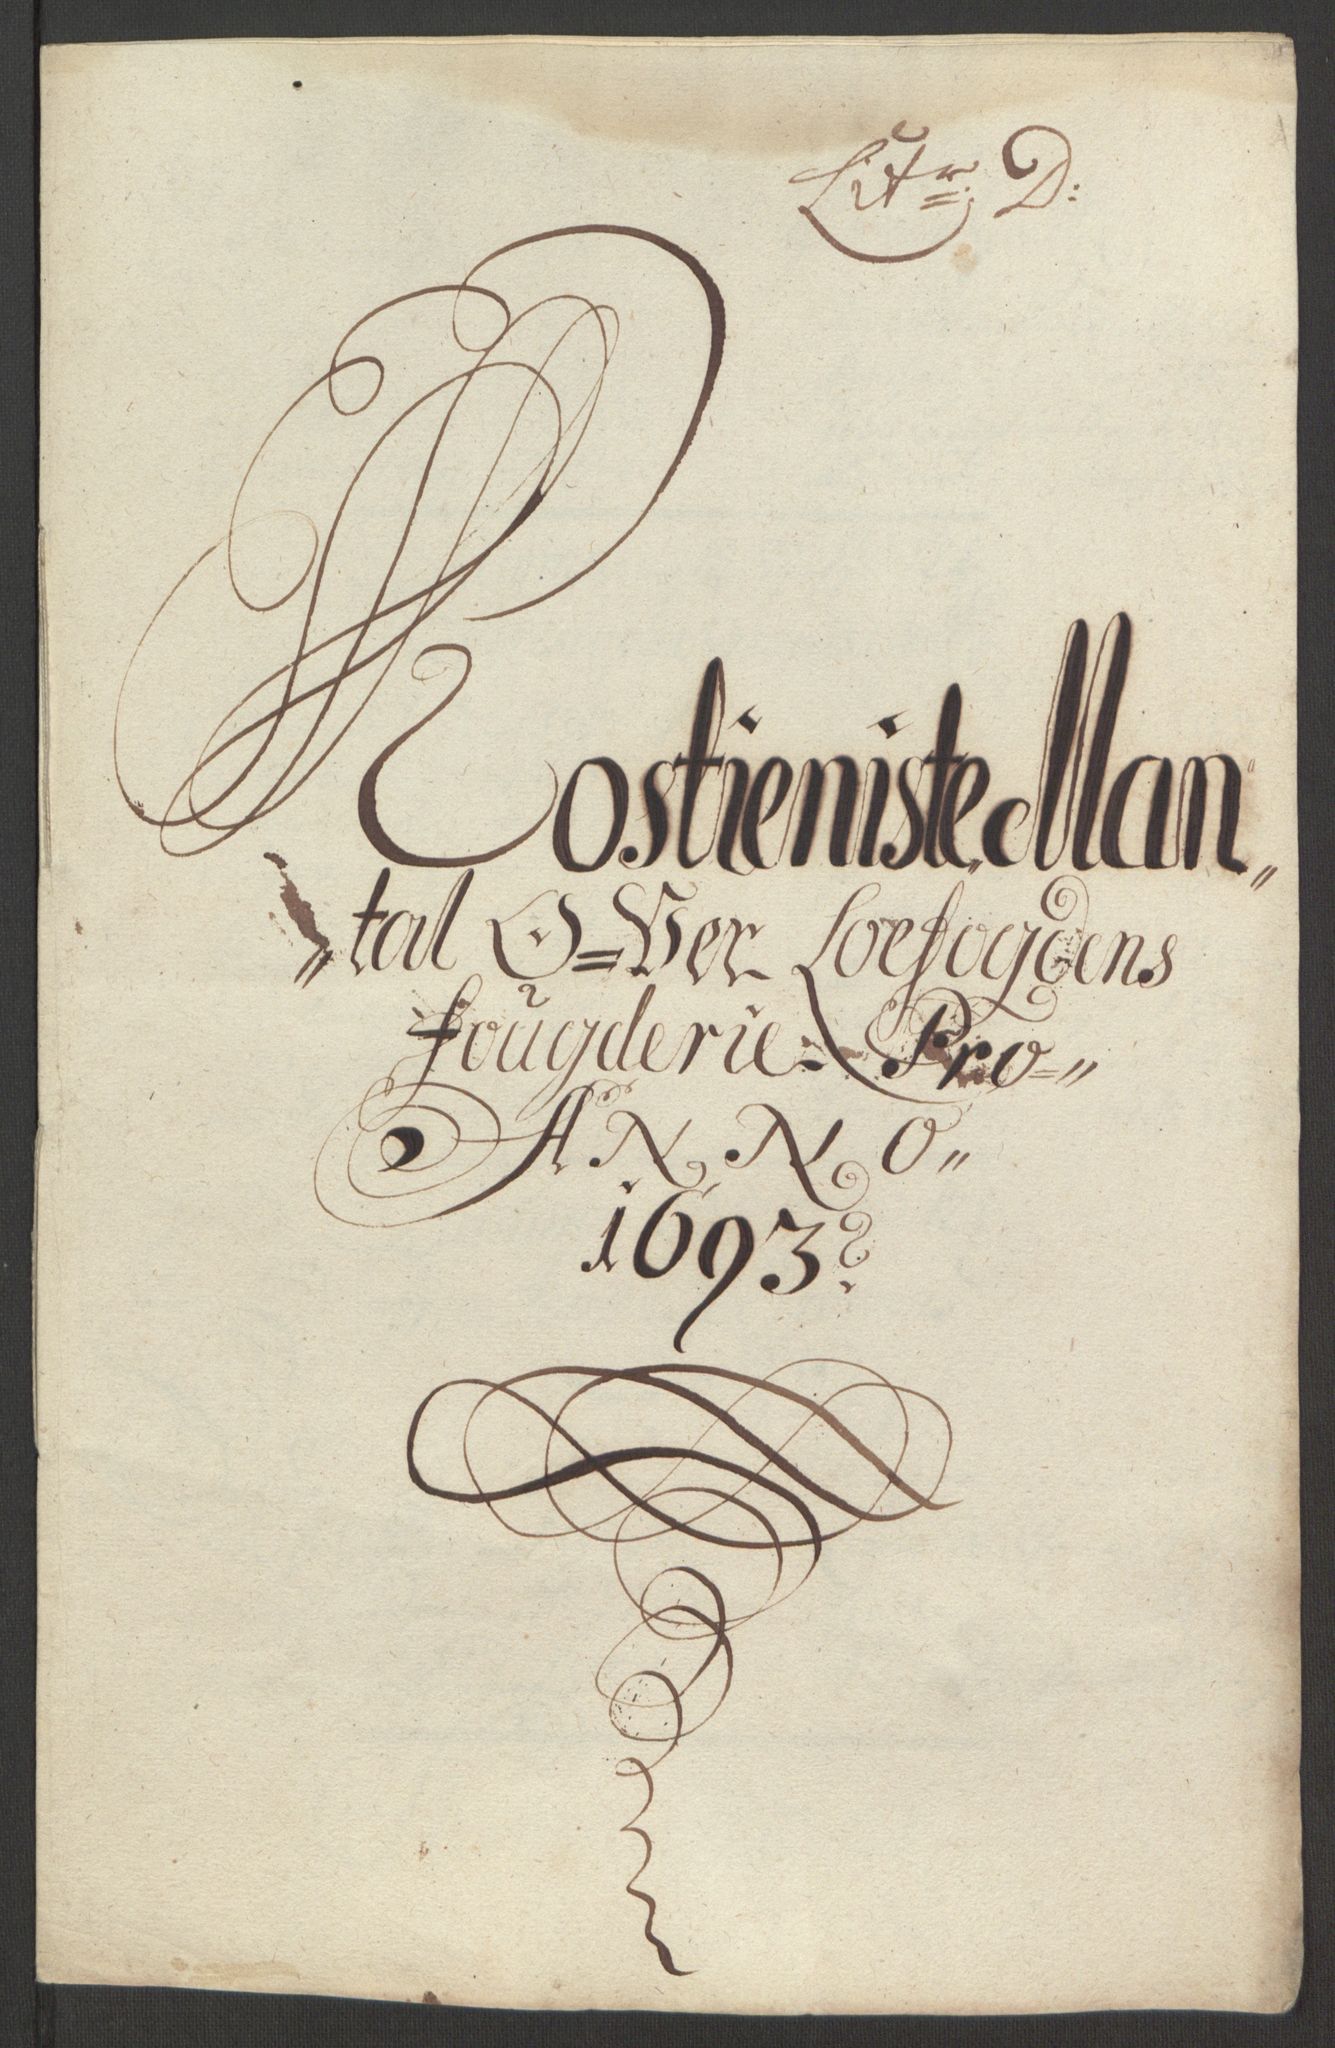 Litr: D:
Rostieniste Man„
„tal O=Ver Loefogdens
fougderie: Pro=„
ANNO„
1693